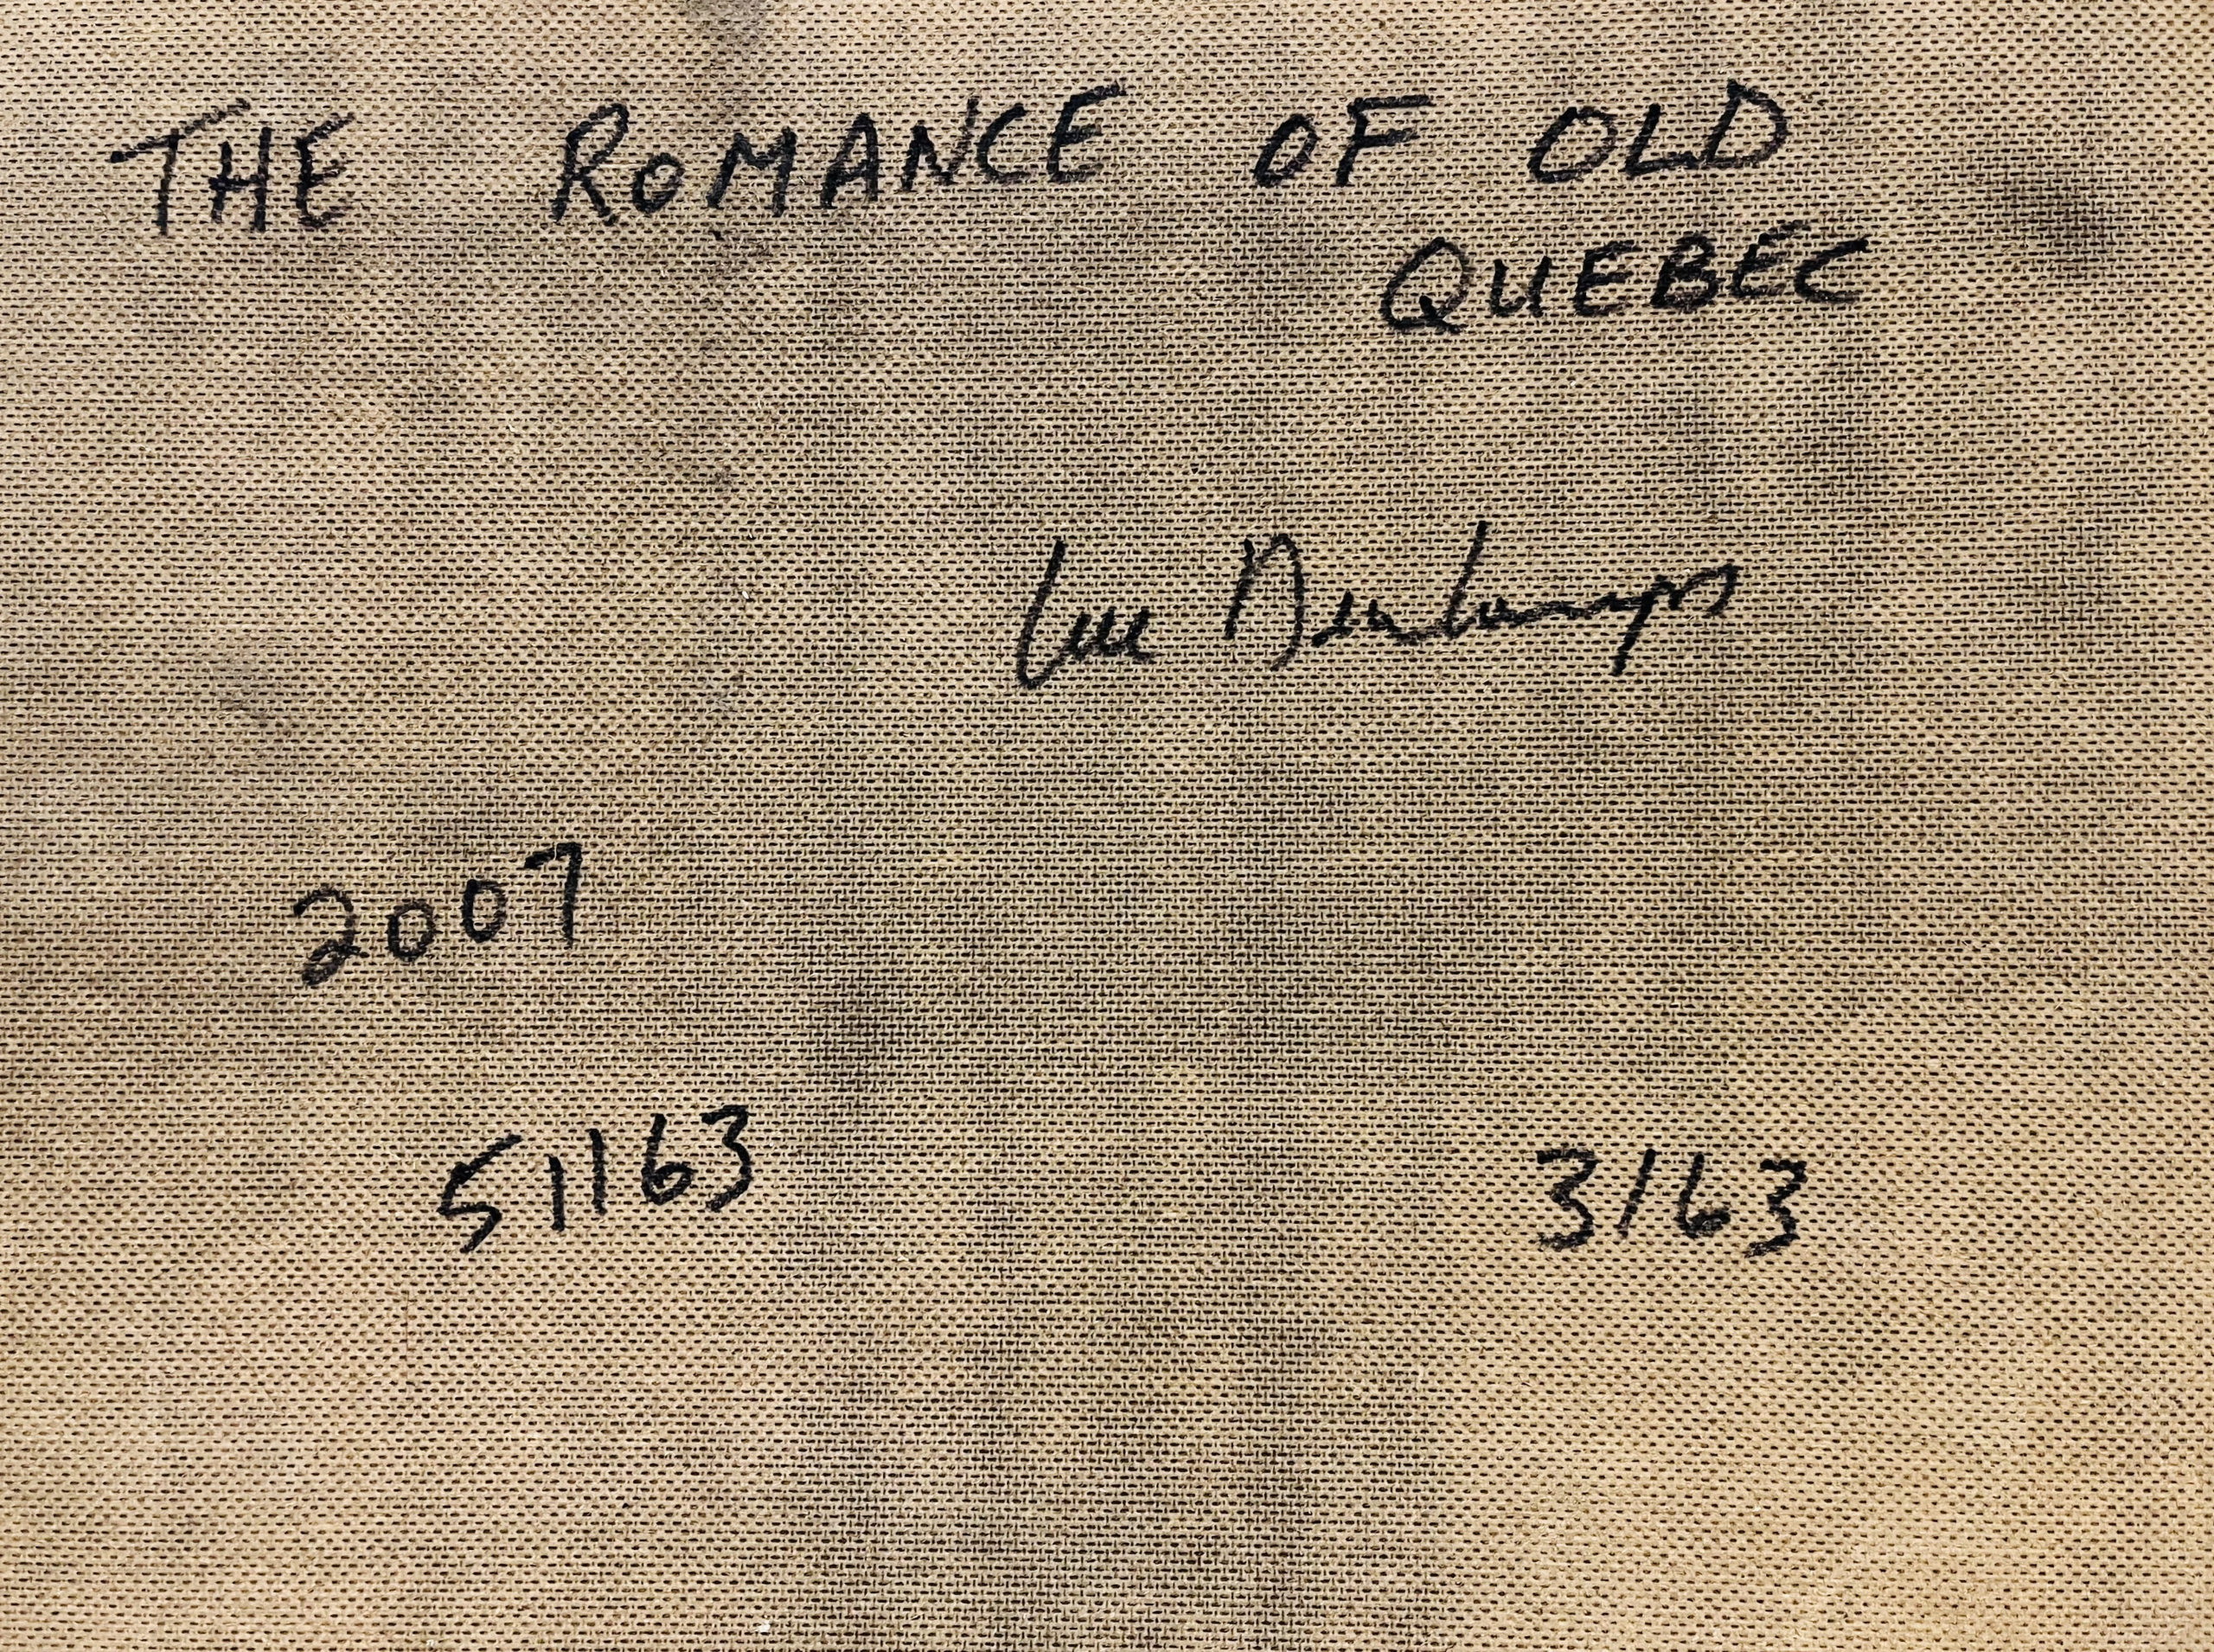 THE ROMANCE OF OLD
QUEBEC
Luc Deschamps
2007
51163
3163